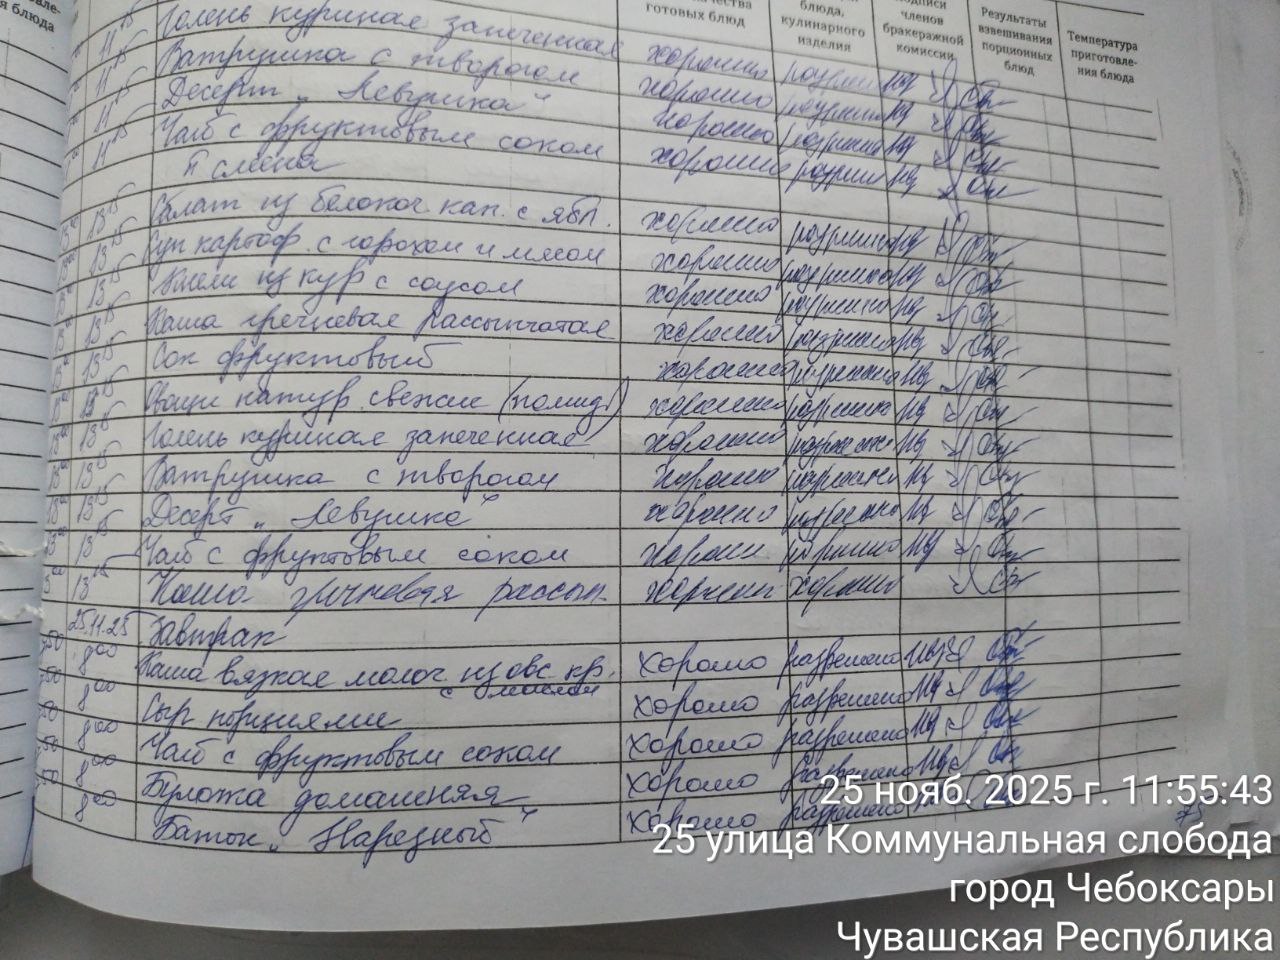 готовых блюд
блюда, кулинарного изделия
членов бракеражной комиссии
Результаты взвешивания порционных блюд
Температура приготовления блюда
я блюда
11 15 Голень куриная запеченная хорошо
11 15 Ватрушка с творогом хорошо
11 15 Десерт "Левушка" хорошо
11 15 Чай с фруктовым соком хорошо
II смена
13 15 Салат из белокоч кап. с ябл. хорошо
13 15 Суп картоф. с горохом и мясом хорошо
13 15 из кур с соусом хорошо
13 15 Каша гречневая рассыпчатая хорошо
13 15 Сок фруктовый хорошо
13 15 Овощи натур. свежие (помид) хорошо
13 15 Голень куриная запеченная хорошо
13 15 Ватрушка с творогом хорошо
13 15 Десерт "Левушка" хорошо
13 15 Чай с фруктовым соком хорошо
13 15 Каша гречневая рассып.
25.11.25 Завтрак
7 50 8 00 Каша вязкая молоч из овс. кр. с маслом хорошо разрешено
7 50 8 00 Сыр порциями хорошо разрешено
7 50 8 00 Чай с фруктовым соком хорошо разрешено
7 50 8 00 Булочка домашняя хорошо разрешено
8 00 Батон "Нарезный" хорошо разрешено
25 нояб. 2025 г. 11:55:43
25 улица Коммунальная слобода
город Чебоксары
Чувашская Республика